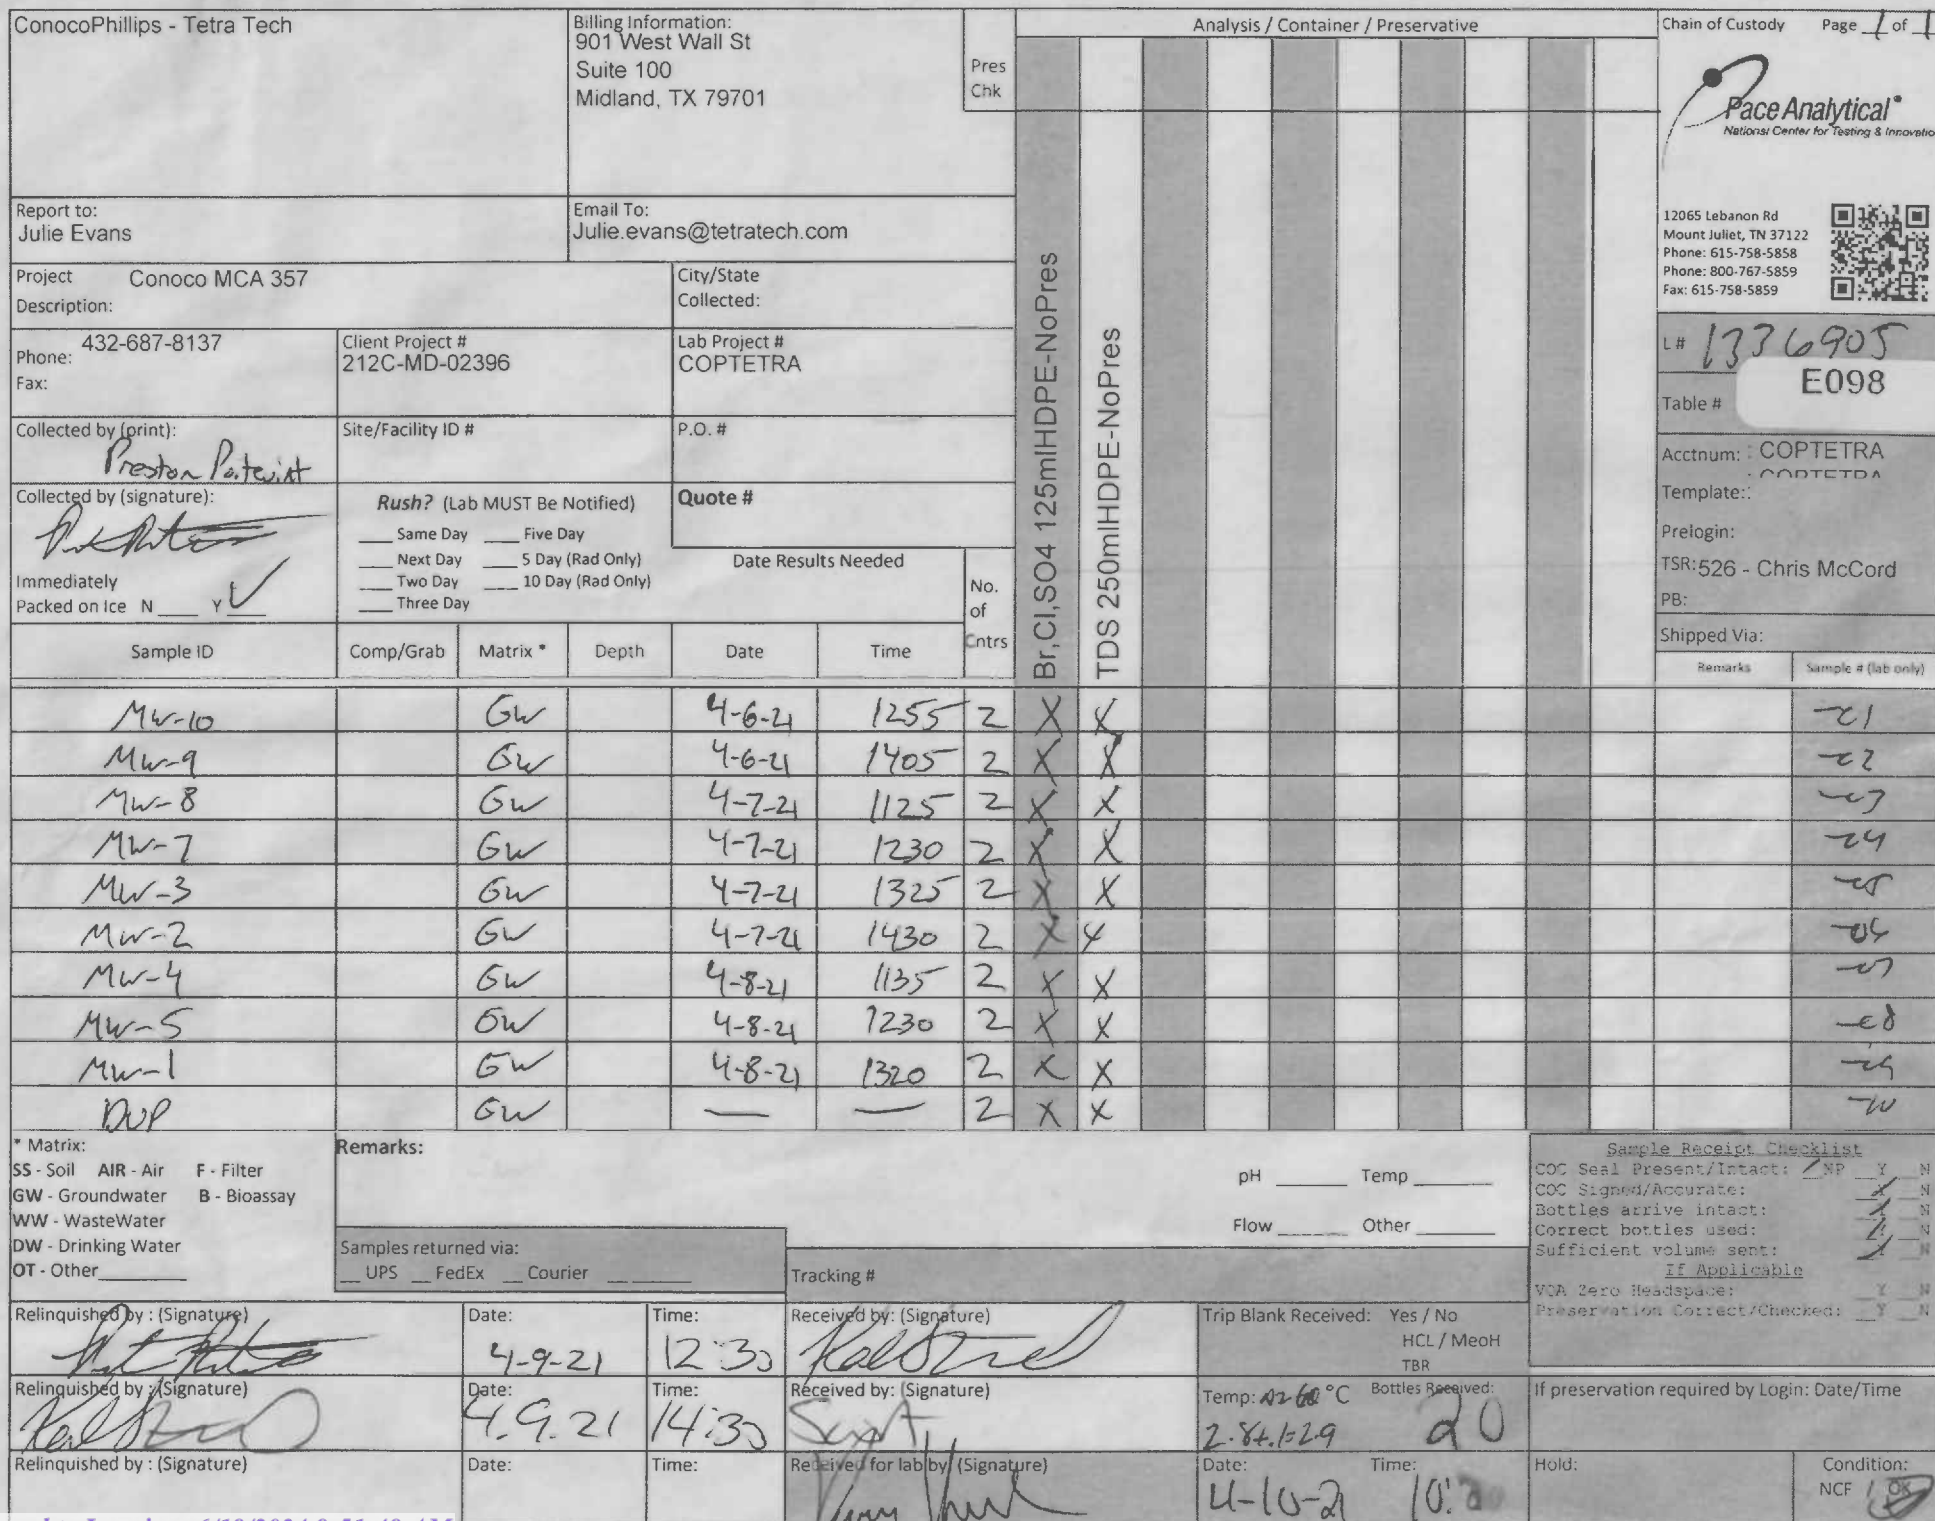 ConocoPhillips - Tetra Tech
Billing Information:
901 West Wall St
Suite 100
Midland, TX 79701
Pres
Chk
Analysis / Container / Preservative
Chain of Custody Page 1 of 1
Pace Analytical®
National Center for Testing & Innovatio
12065 Lebanon Rd
Mount Juliet, TN 37122
Phone: 615-758-5858
Phone: 800-767-5859
Fax: 615-758-5859
Report to:
Julie Evans
Email To:
Julie.evans@tetratech.com
Project Description: Conoco MCA 357
City/State
Collected:
Phone: 432-687-8137
Fax:
Client Project #
212C-MD-02396
Lab Project #
COPTETRA
L # 1336905
E098
Table #
Collected by (print):
Preston
Site/Facility ID #
P.O. #
Acctnum: COPTETRA
COPTETRA
Template:
Prelogin:
TSR: 526 - Chris McCord
PB:
Shipped Via:
Collected by (signature):
Immediately
Packed on Ice N ___ Y ✓
Rush? (Lab MUST Be Notified)
___ Same Day ___ Five Day
___ Next Day ___ 5 Day (Rad Only)
___ Two Day ___ 10 Day (Rad Only)
___ Three Day
Quote #
Date Results Needed
No.
of
Cntrs
Br,Cl,SO4 125mlHDPE-NoPres
TDS 250mlHDPE-NoPres
Sample ID Comp/Grab Matrix * Depth Date Time Remarks Sample # (lab only)
MW-10 GW 4-6-21 1255 2 X X -01
MW-9 GW 4-6-21 1405 2 X X -02
MW-8 GW 4-7-21 1125 2 X X -03
MW-7 GW 4-7-21 1230 2 X X -04
MW-3 GW 4-7-21 1325 2 X X -05
MW-2 GW 4-7-21 1430 2 X X -06
MW-4 GW 4-8-21 1135 2 X X -07
MW-5 GW 4-8-21 1230 2 X X -08
MW-1 GW 4-8-21 1320 2 X X -09
DUP GW — — 2 X X -10
* Matrix:
SS - Soil AIR - Air F - Filter
GW - Groundwater B - Bioassay
WW - WasteWater
DW - Drinking Water
OT - Other
Remarks:
pH ___ Temp ___
Flow ___ Other ___
Samples returned via:
__ UPS __ FedEx __ Courier ___
Tracking #
Sample Receipt Checklist
COC Seal Present/Intact: ✓ NP Y N
COC Signed/Accurate: Y N
Bottles arrive intact: Y N
Correct bottles used: Y N
Sufficient volume sent: Y N
If Applicable
VOA Zero Headspace: Y N
Preservation Correct/Checked: Y N
Relinquished by : (Signature) Date: 4-9-21 Time: 12:30 Received by: (Signature)
Trip Blank Received: Yes / No
HCL / MeoH
TBR
Relinquished by : (Signature) Date: 4.9.21 Time: 14:30 Received by: (Signature)
Temp: °C Bottles Received: 20
2.8+.1=2.9
If preservation required by Login: Date/Time
Relinquished by : (Signature) Date: Time: Received for lab by: (Signature)
Date: 4-10-21 Time:
Hold:
Condition:
NCF / OK